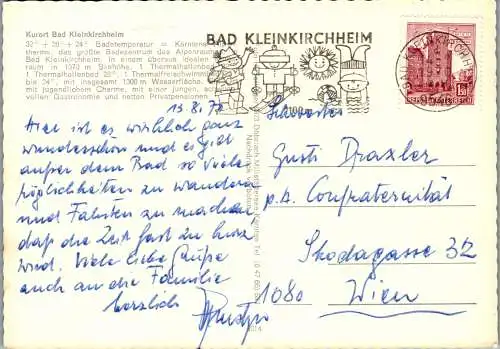 Kurort Bad Kleinkirchheim
32° + 28° + 24° Badetemperatur = Kärntens
therme, das größte Badezentrum des Alpenraumes
Bad Kleinkirchheim. In einem überaus idealen
raum in 1370 m Seehöhe, 1 Thermalhallenbad
1 Thermalhallenbad 28°, 1 Thermalfreischwimmbad
24°, mit insgesamt 1300 m² Wasserfläche.
mit jugendlichem Charme, mit einer jungen,
vollen Gastronomie und netten Privatpensionen
BAD KLEINKIRCHHEIM
REPUBLIK ÖSTERREICH
13.8.72
Hier ist es wirklich ganz
wunderschön und es gibt
außer dem Bad so viele
Möglichkeiten zu wandern
und Fahrten zu machen
daß die Zeit fast zu kurz
wird. Viele liebe Grüße
auch an die Familie
herzlich
Schwester
Gusti Draxler
p.A. Confraternität
Skodagasse 32
1080 Wien